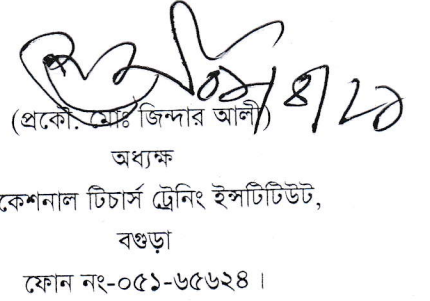 (প্রকৌ. মোঃ জিন্দার আলী)
অধ্যক্ষ
কেশনাল টিচার্স ট্রেনিং ইন্সটিটিউট,
বগুড়া
ফোন নং-০৫১-৬৫৬২৪।